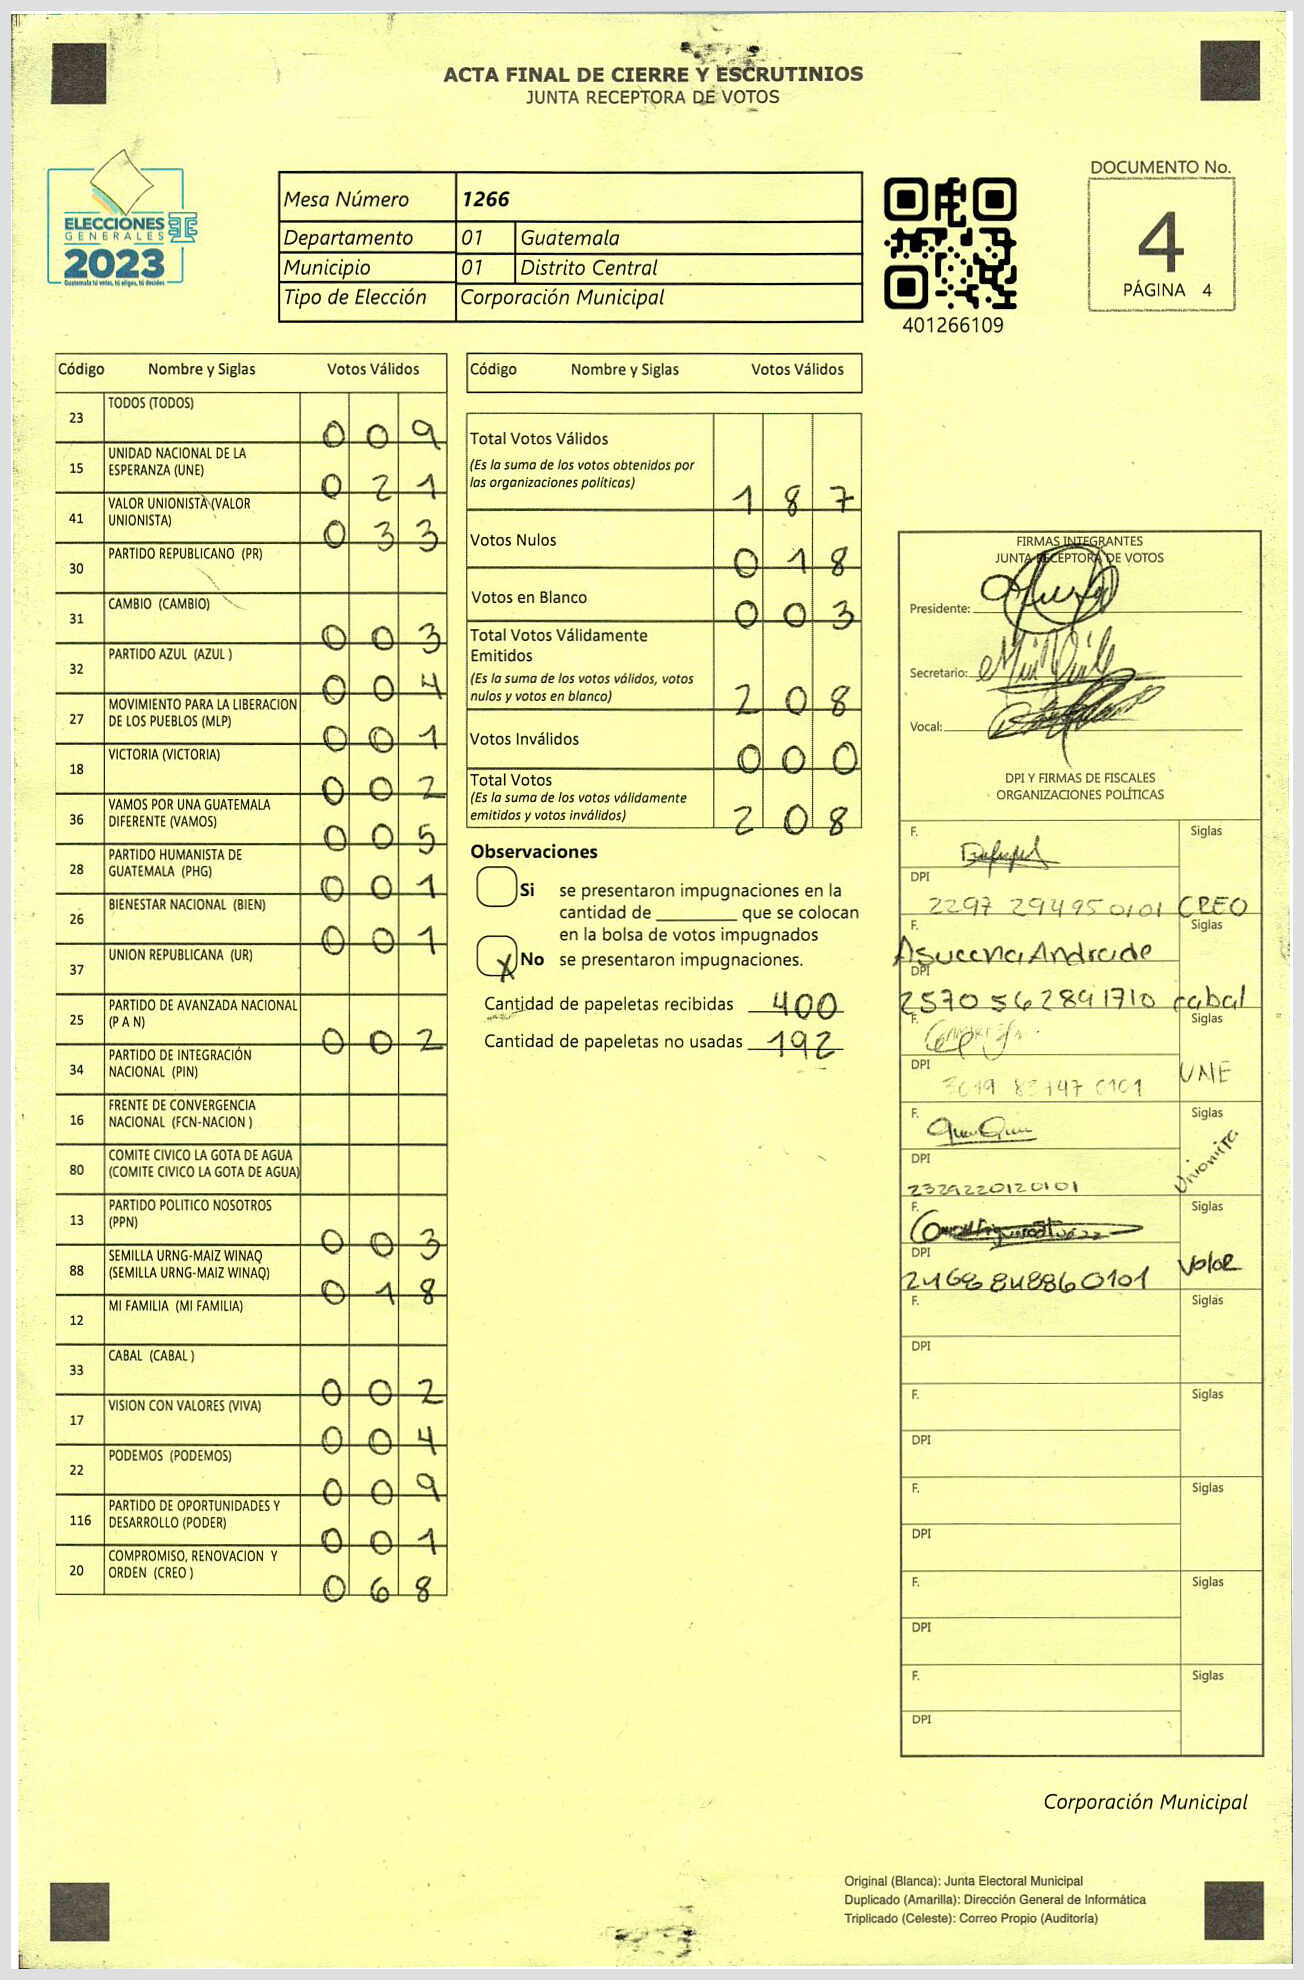 ACTA FINAL DE CIERRE Y ESCRUTINIOS
JUNTA RECEPTORA DE VOTOS
ELECCIONES
GENERALES
2023
Guatemala tú votas, tú eliges, tú decides
Mesa Número 1266
Departamento 01 Guatemala
Municipio 01 Distrito Central
Tipo de Elección Corporación Municipal
401266109
DOCUMENTO No.
4
PÁGINA 4
Código Nombre y Siglas Votos Válidos
23 TODOS (TODOS) 0 0 9
15 UNIDAD NACIONAL DE LA
ESPERANZA (UNE) 0 2 1
41 VALOR UNIONISTA (VALOR
UNIONISTA) 0 3 3
30 PARTIDO REPUBLICANO (PR)
31 CAMBIO (CAMBIO) 0 0 3
32 PARTIDO AZUL (AZUL ) 0 0 4
27 MOVIMIENTO PARA LA LIBERACION
DE LOS PUEBLOS (MLP) 0 0 1
18 VICTORIA (VICTORIA) 0 0 2
36 VAMOS POR UNA GUATEMALA
DIFERENTE (VAMOS) 0 0 5
28 PARTIDO HUMANISTA DE
GUATEMALA (PHG) 0 0 1
26 BIENESTAR NACIONAL (BIEN) 0 0 1
37 UNION REPUBLICANA (UR)
25 PARTIDO DE AVANZADA NACIONAL
(P A N) 0 0 2
34 PARTIDO DE INTEGRACIÓN
NACIONAL (PIN)
16 FRENTE DE CONVERGENCIA
NACIONAL (FCN-NACION )
80 COMITE CIVICO LA GOTA DE AGUA
(COMITE CIVICO LA GOTA DE AGUA)
13 PARTIDO POLITICO NOSOTROS
(PPN) 0 0 3
88 SEMILLA URNG-MAIZ WINAQ
(SEMILLA URNG-MAIZ WINAQ) 0 1 8
12 MI FAMILIA (MI FAMILIA)
33 CABAL (CABAL ) 0 0 2
17 VISION CON VALORES (VIVA) 0 0 4
22 PODEMOS (PODEMOS) 0 0 9
116 PARTIDO DE OPORTUNIDADES Y
DESARROLLO (PODER) 0 0 1
20 COMPROMISO, RENOVACION Y
ORDEN (CREO ) 0 6 8
Código Nombre y Siglas Votos Válidos
Total Votos Válidos
(Es la suma de los votos obtenidos por
las organizaciones políticas) 1 8 7
Votos Nulos 0 1 8
Votos en Blanco 0 0 3
Total Votos Válidamente
Emitidos
(Es la suma de los votos válidos, votos
nulos y votos en blanco) 2 0 8
Votos Inválidos 0 0 0
Total Votos
(Es la suma de los votos válidamente
emitidos y votos inválidos) 2 0 8
Observaciones
Si se presentaron impugnaciones en la
cantidad de ________ que se colocan
en la bolsa de votos impugnados
X No se presentaron impugnaciones.
Cantidad de papeletas recibidas 400
Cantidad de papeletas no usadas 192
FIRMAS INTEGRANTES
JUNTA RECEPTORA DE VOTOS
Presidente:
Secretario:
Vocal:
DPI Y FIRMAS DE FISCALES
ORGANIZACIONES POLÍTICAS
F. Siglas
DPI
2297 294950101 CREO
F. Asucena Andrade Siglas
DPI
2570 562891710 cabal
F. Siglas
DPI
UNE
F. Siglas
DPI
2329220120101 Unionista
F. Siglas
DPI
2468848860101 Valor
F. Siglas
DPI
F. Siglas
DPI
F. Siglas
DPI
F. Siglas
DPI
F. Siglas
DPI
Corporación Municipal
Original (Blanca): Junta Electoral Municipal
Duplicado (Amarilla): Dirección General de Informática
Triplicado (Celeste): Correo Propio (Auditoría)